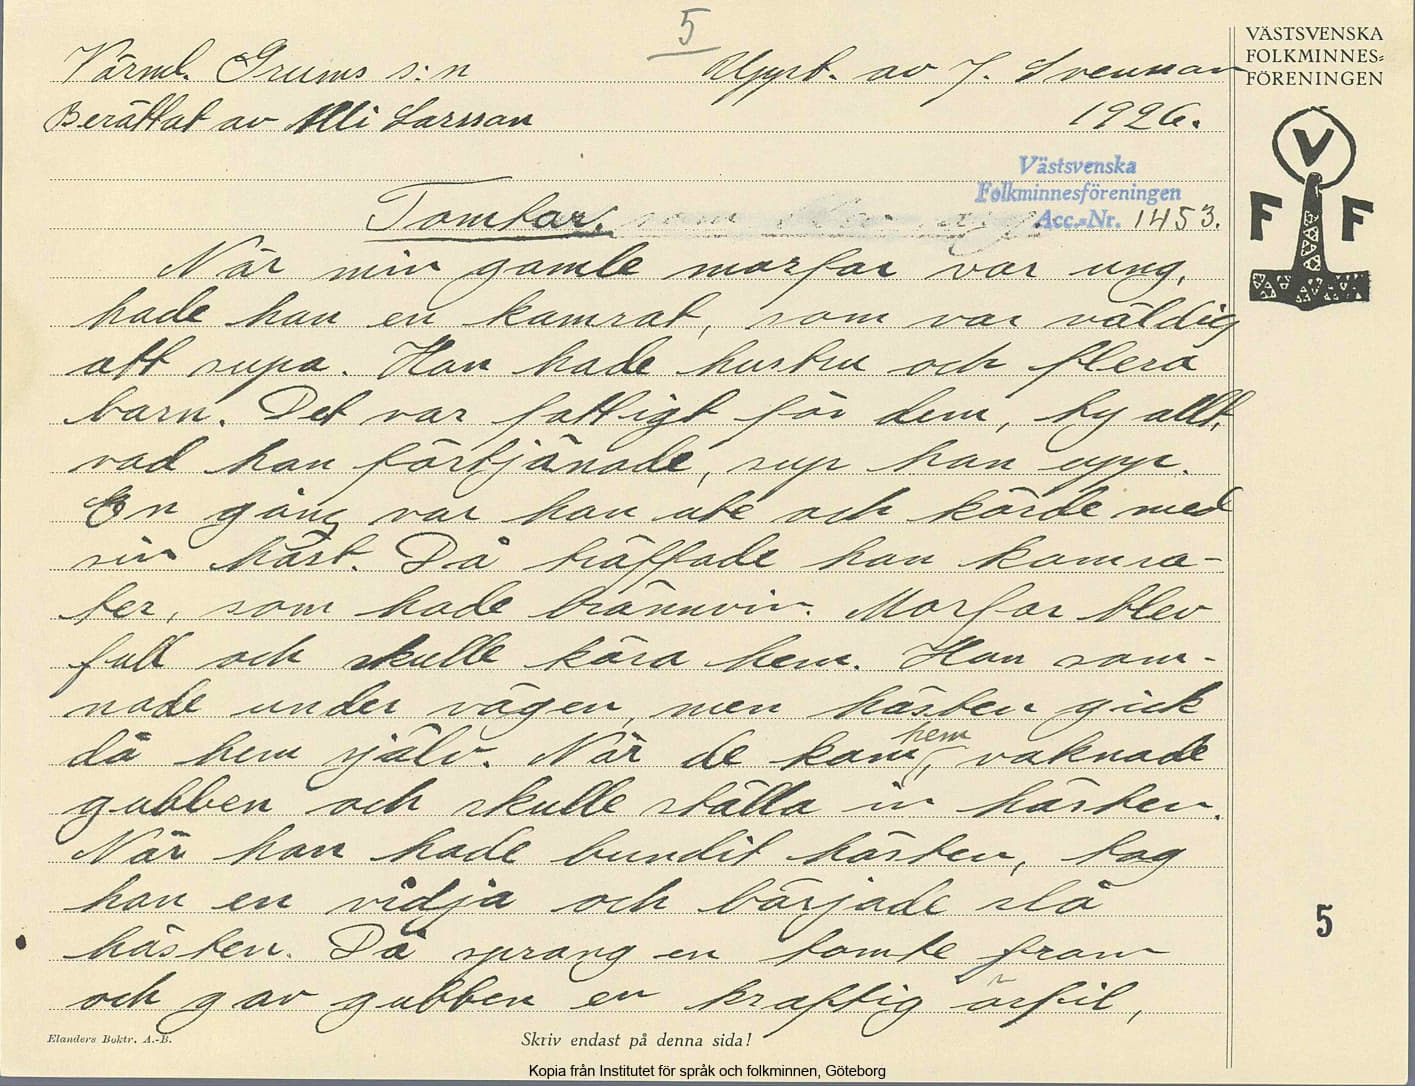 5
Värml. Grums s:n Uppt. av J. Svensson
Berättat av Alli Larsson 1926.
VÄSTSVENSKA
FOLKMINNES=
FÖRENINGEN
V
F F
Västsvenska
Folkminnesföreningen
Acc.-Nr. 1453.
Tomtar. som
När min gamle morfar var ung,
hade han en kamrat, som var väldig
att supa. Han hade hustru och flera
barn. Det var fattigt för dem, ty allt,
vad han förtjänade, sup han upp.
En gång var han ute och körde med
sin häst. Då träffade han kamra-
ter, som hade brännvin. Morfar blev
full och skulle köra hem. Han som-
nade under vägen, men hästen gick
då hem själv. När de kom hem, vaknade
gubben och skulle ställa in hästen.
När han hade bundit hästen, tog
han en vidja och började slå
hästen. Då sprang en tomte fram
och gav gubben en kraftig örfil,
5
Elanders Boktr. A.-B.
Skriv endast på denna sida!
Kopia från Institutet för språk och folkminnen, Göteborg